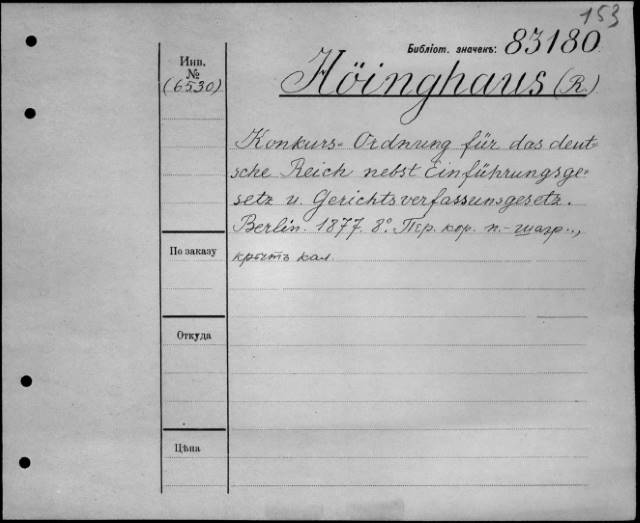 153
Библіот. значекъ: 83180
Инв.
№
(6530)
Höinghaus (R.)
Konkurs-Ordnung für das deut-
sche Reich nebst Einführungsge-
setz u. Gerichtsverfassunsgesetz.
Berlin. 1877. 8º. Пер. кор. п.-шагр.,
крытъ кал.
По заказу
Откуда
Цѣна